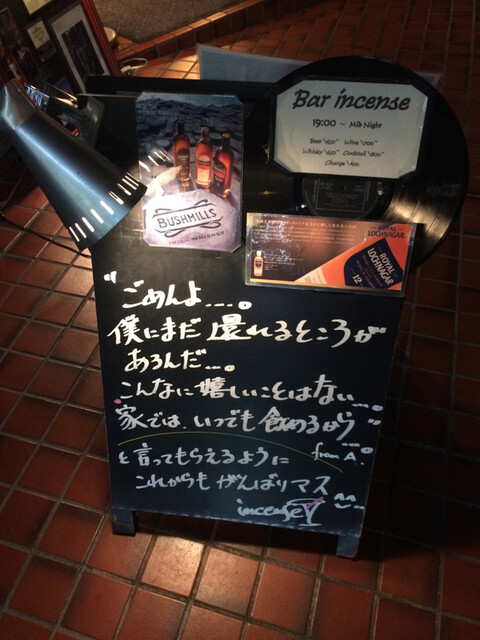 Bar incense
19:00 ~ Mid Night
Beer ¥600~ Wine ¥700~
Whisky ¥600~ Cocktail ¥800~
Charge ¥400
BUSHMILLS
IRISH WHISKEY
ROYAL
LOCHNAGAR
ROYAL
LOCHNAGAR
12
"ごめんよ....。
僕にまだ還れるところが
あるんだ...。
こんなに嬉しいことはない...。
家では、いつでも飲めるから"
from A.
と言ってもらえるように
これからもがんばりマス
incense